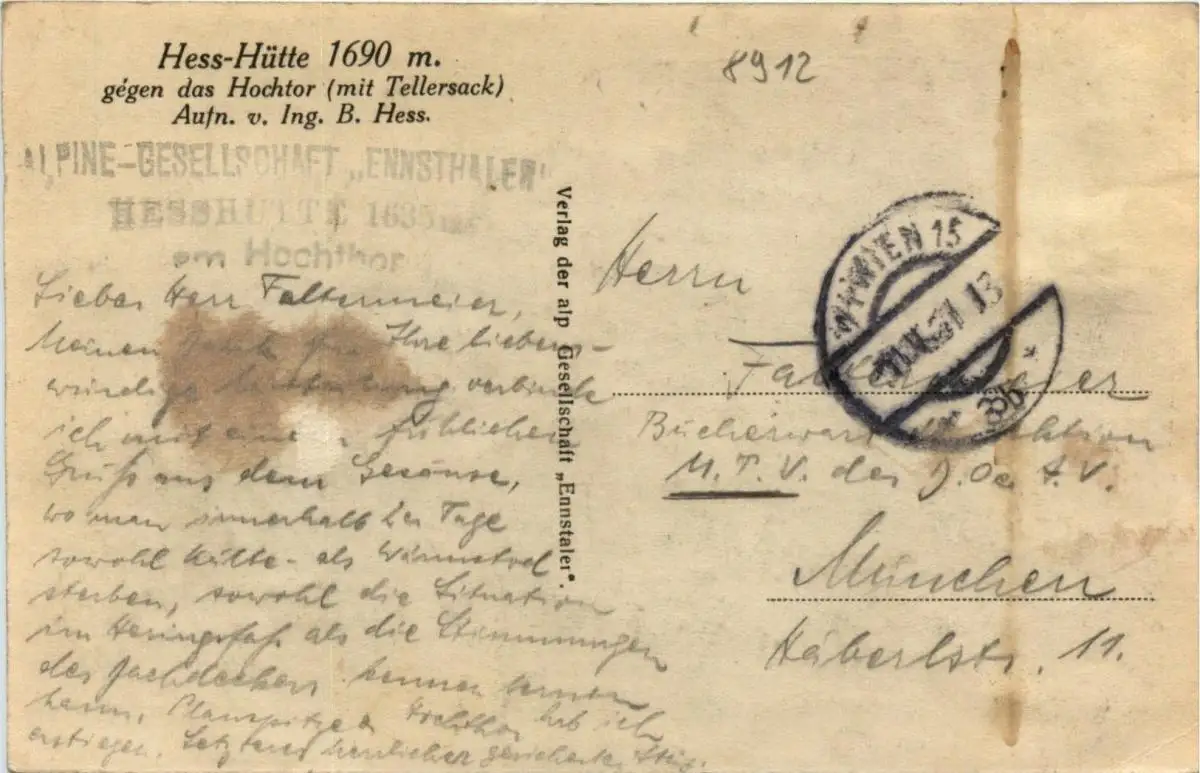 Hess-Hütte 1690 m.
gégen das Hochtor (mit Tellersack)
Aufn. v. Ing. B. Hess.
8912
ALPINE-GESELLSCHAFT „ENNSTHALER"
HESSHÜTTE 1635
am Hochthor
Verlag der alp Gesellschaft „Ennstaler".
WIEN 15
13
3b
Lieber Herr Faltermeier,
Meinen Dank für Ihre liebens-
würdige verbinde
ich mit einem fröhlichen
Gruß aus dem Gesäuse,
wo man innerhalb 2er Tage
sowohl Kälte- als Wärmetod
sterben, sowohl die Situation
im Heringsfaß als die Stimmungen
des Dachdeckers kennen lernen
kann. Planspitze u Hochthor hab ich
erstiegen. Letzteres herrlicher gesicherter Steig.
Herrn
Faltermeier
Bücherwart Sektion
M.T.V. des D.Oe A.V.
München
Häberlstr. 11.